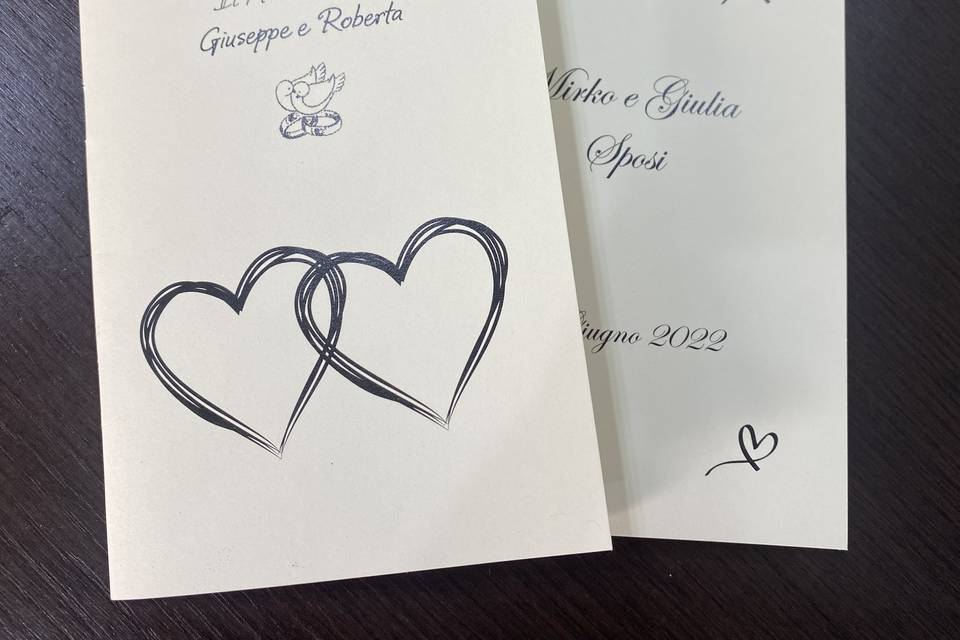 Giuseppe e Roberta
Mirko e Giulia
Sposi
Giugno 2022